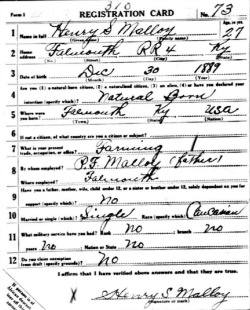 Form 1
310
REGISTRATION CARD No. 73
1 Name in full Henry S Malloy 27
(Given name) (Family name) Age, in yrs.
2 Home address Falmouth RR 4 Ky
(No.) (Street) (City) (State)
3 Date of birth Dec 30 1889
(Month) (Day) (Year)
4 Are you (1) a natural-born citizen, (2) a naturalized citizen, (3) an alien, (4) or have you declared your
intention (specify which)? Natural Born
5 Where were you born? Falmouth Ky USA
(Town) (State) (Nation)
6 If not a citizen, of what country are you a citizen or subject?
7 What is your present trade, occupation, or office? Farming
8 By whom employed? P.F. Malloy (Father)
Where employed? Falmouth
9 Have you a father, mother, wife, child under 12, or a sister or brother under 12, solely dependent on you for
support (specify which)? No
10 Married or single (which)? Single Race (specify which)? Caucasian
11 What military service have you had? Rank No branch No
years No Nation or State No
12 Do you claim exemption from draft (specify grounds)? No
I affirm that I have verified above answers and that they are true.
X Henry S. Malloy
(Signature or mark)